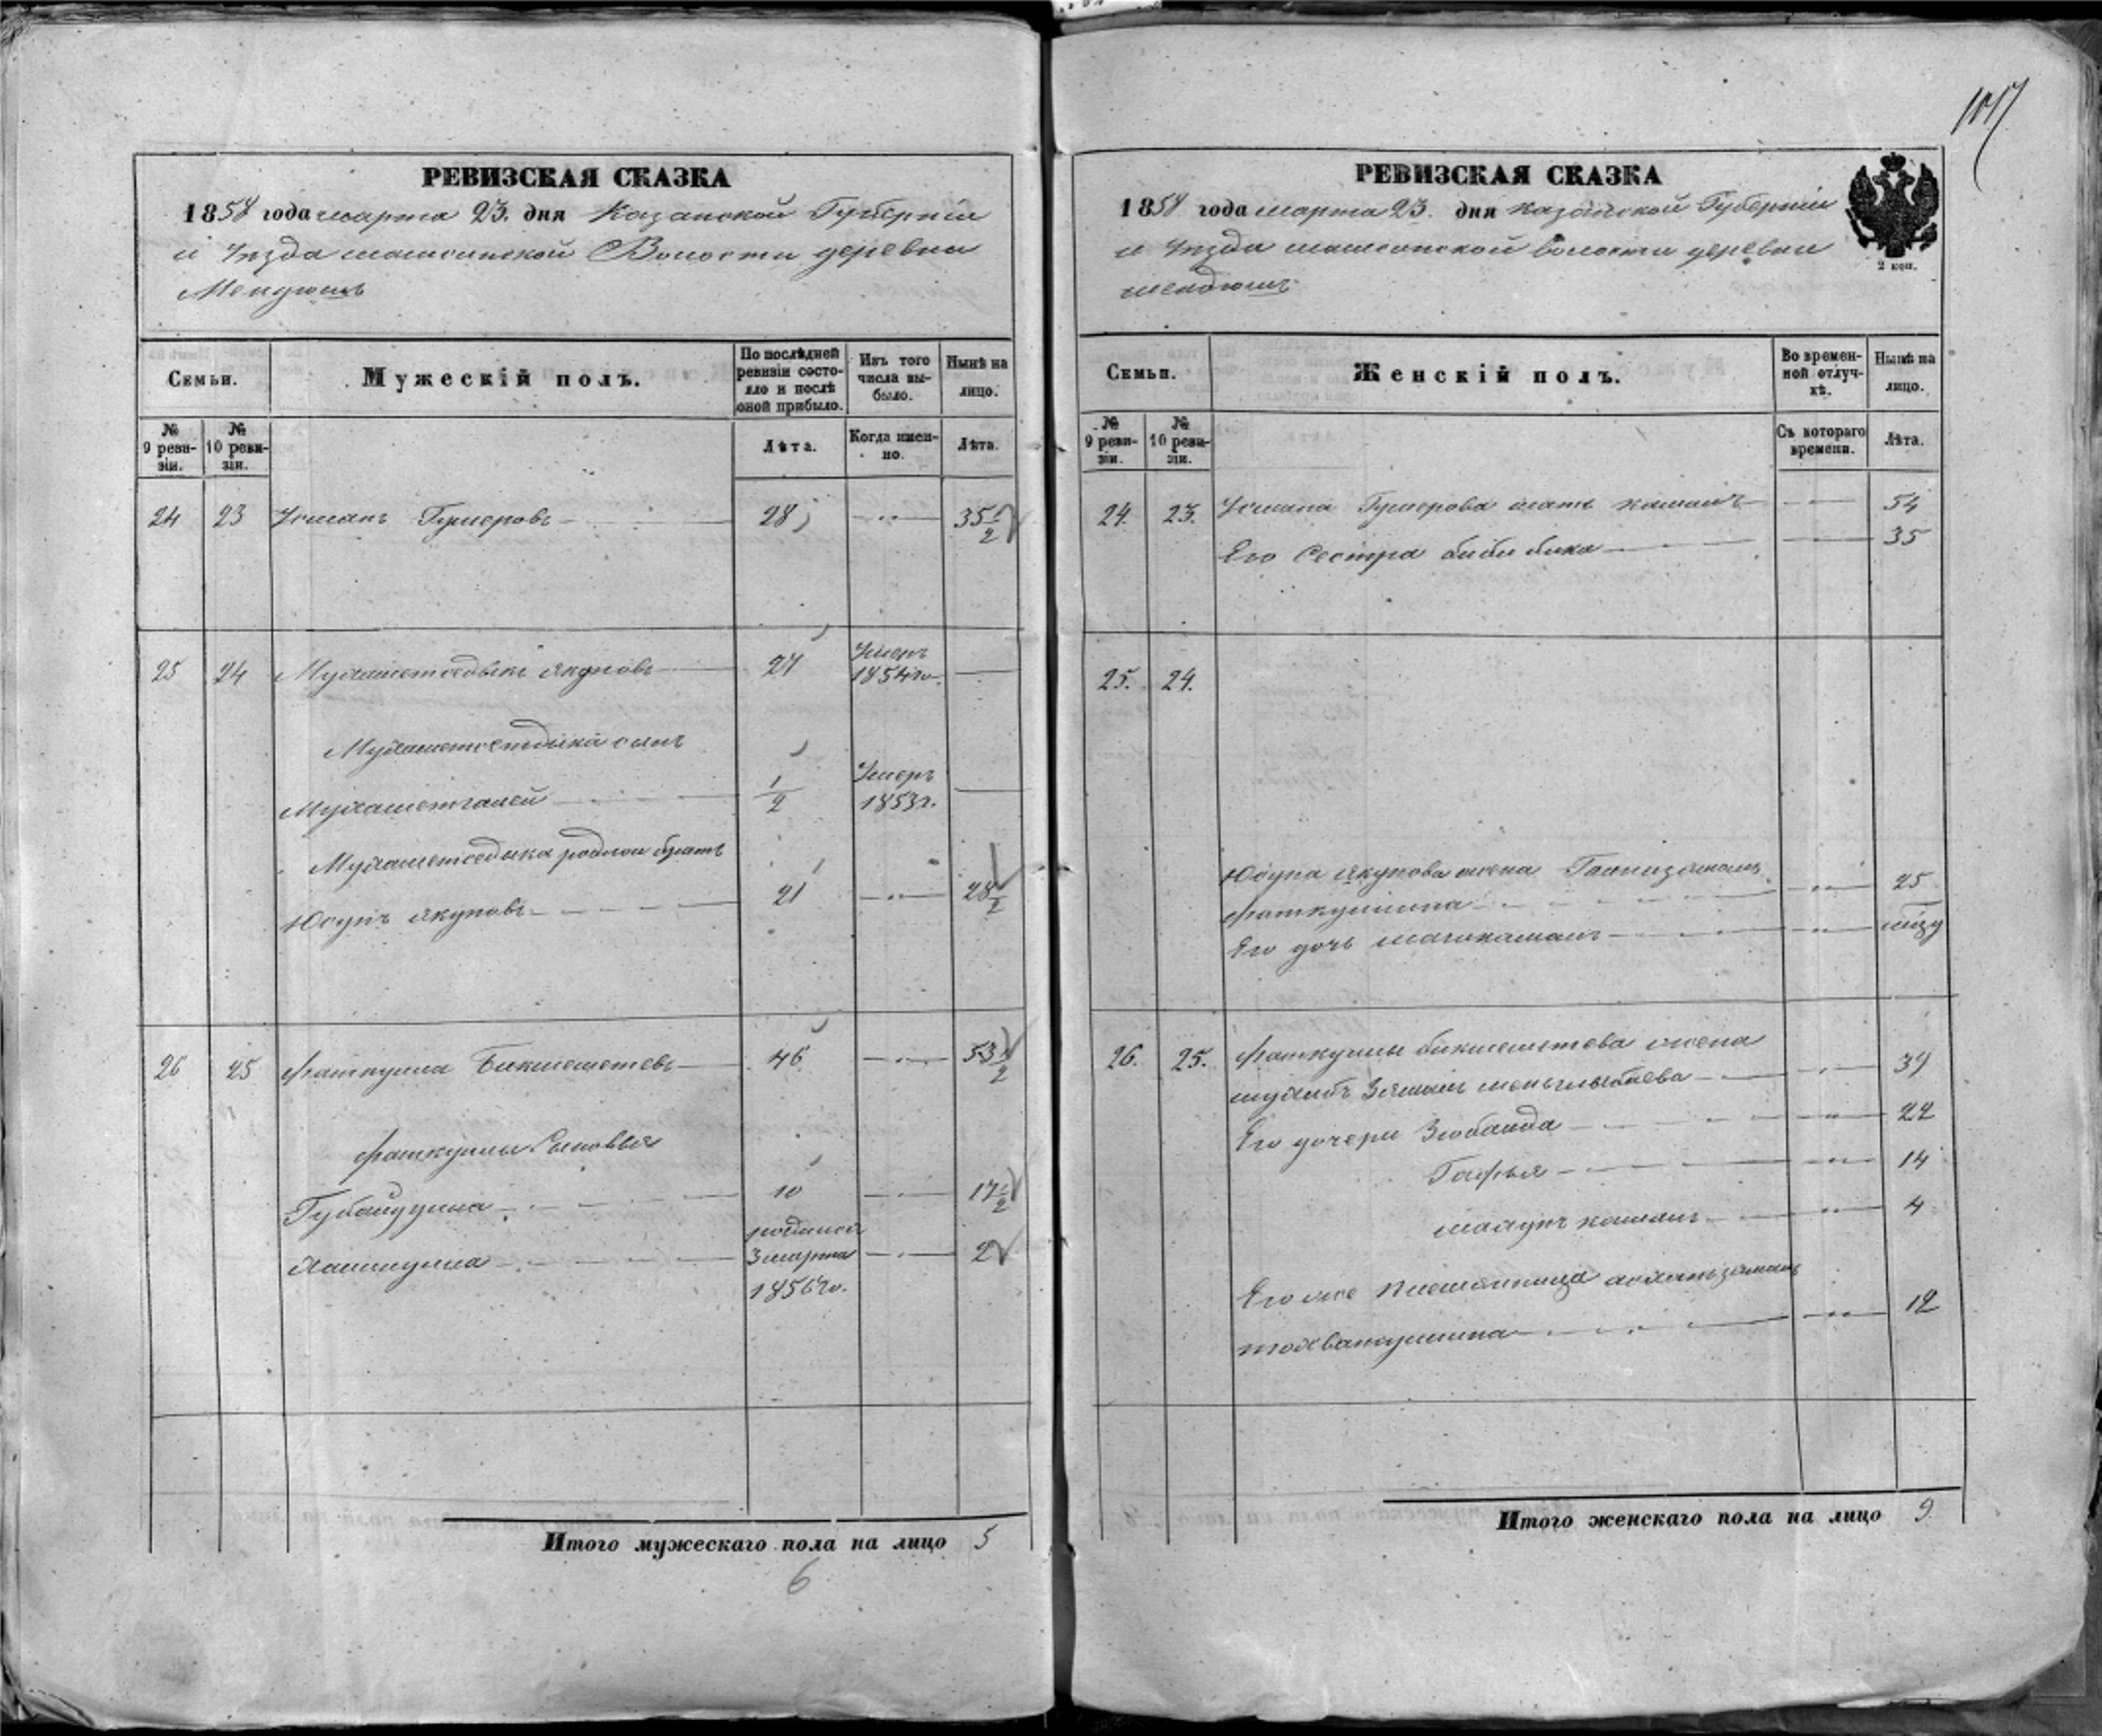 1017
РЕВИЗСКАЯ СКАЗКА
1858 года марта 23. дня Казанской Губерніи
и Уѣзда машсинской Волости деревни
Мендюшъ
Семьи.
Мужескій полъ.
По послѣдней ревизіи состояло и послѣ оной прибыло.
Изъ того числа выбыло.
Нынѣ на лицо.
№ 9 ревизіи.
№ 10 ревизіи.
Лѣта.
Когда именно.
Лѣта.
24 23 Усманъ Гумеровъ 28 35 1/2
25 24 Мухаметседыкъ Якуповъ 27 Умеръ 1854го.
Мухаметседыка сынъ
Мухаметгалей 1/2 Умеръ 1853г.
Мухаметседыка родной братъ
Юсупъ Якуповъ 21 28 1/2
26 25 Фаткулла Бикмеметевъ 46 53 1/2
Фаткуллы Сыновья
Губайдулла 10 17 1/2
родился
3 марта 2
1856го.
Итого мужескаго пола на лицо 5
6
РЕВИЗСКАЯ СКАЗКА
1858 года марта 23. дня Казанской Губерніи
и Уѣзда волости деревни
мендюшъ
2 коп.
Семьи.
Женскій полъ.
Во временной отлучкѣ.
Нынѣ на лицо.
№ 9 ревизіи.
№ 10 ревизіи.
Съ котораго времени.
Лѣта.
24. 23. Усмана Гумерова мать 54
Его Сестра Бибибика 35
25. 24.
Юсупа Якупова жена 25
Фаткуллина
Его дочь
26. 25. Фаткуллы Бикмеметева жена
39
Его дочери Зюбаида 22
Гафья 14
4
Его же племянница
12
Итого женскаго пола на лицо 9